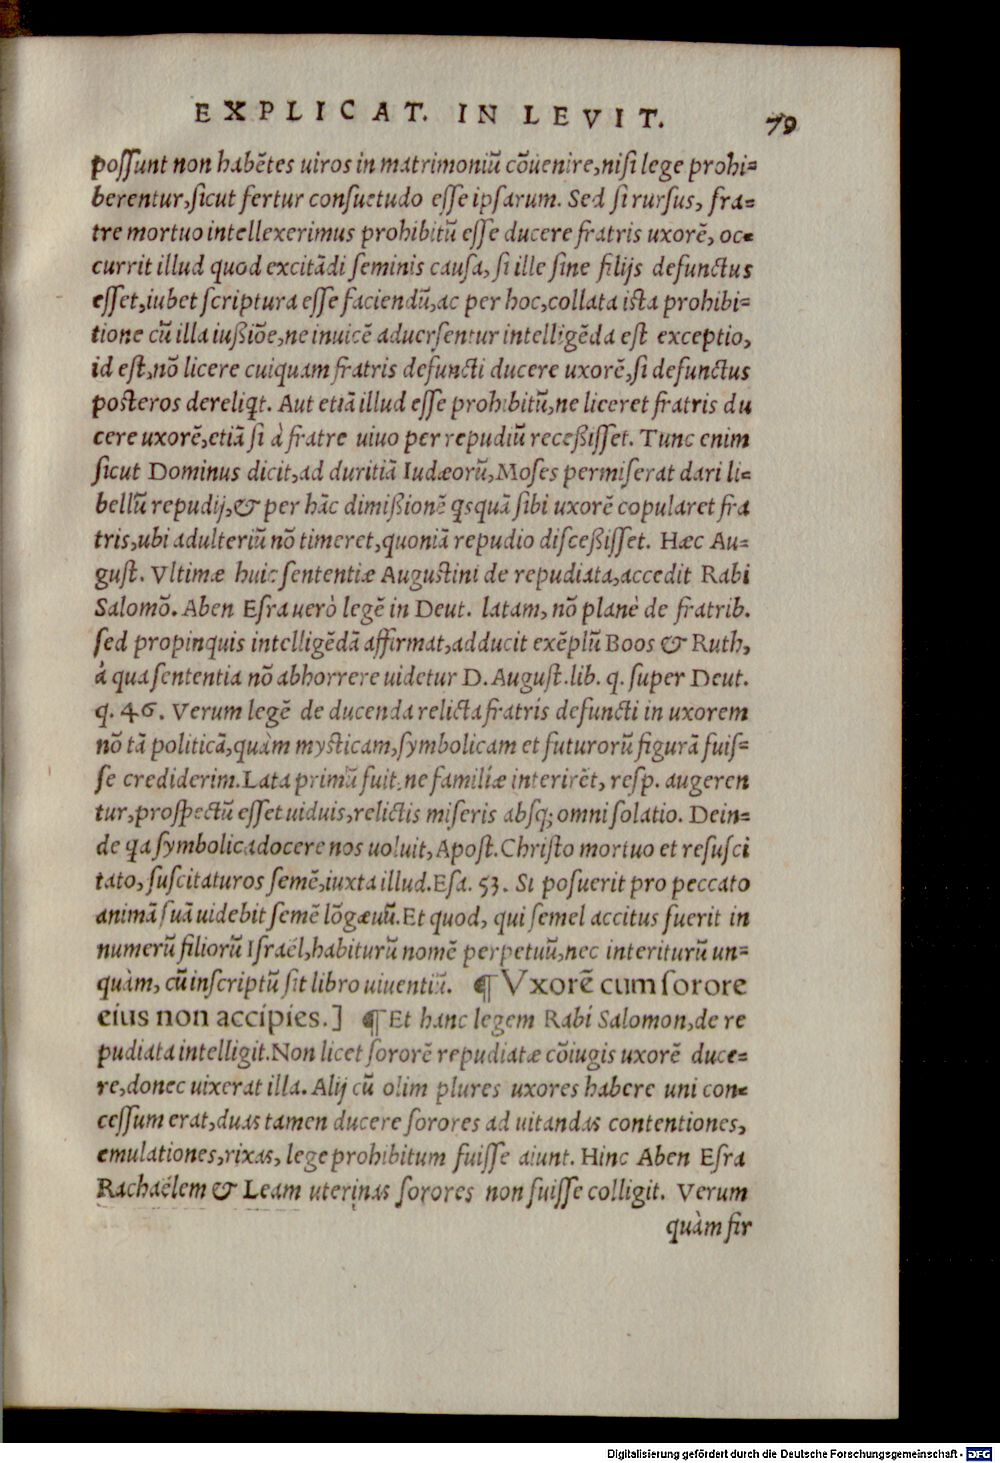 EXPLICAT. IN LEVIT. 79
poſſunt non habẽtes uiros in matrimoniũ cõuenire, niſi lege prohi-
berentur, ſicut fertur conſuetudo eſſe ipſarum. Sed ſi rurſus, fra-
tre mortuo intellexerimus prohibitũ eſſe ducere fratris uxorẽ, oc-
currit illud quod excitãdi ſeminis cauſa, ſi ille ſine filijs defunctus
eſſet, iubet ſcriptura eſſe faciendũ, ac per hoc, collata iſta prohibi-
tione cũ illa iußiõe, ne inuicẽ aduerſentur intelligẽda eſt exceptio,
id eſt, nõ licere cuiquam fratris defuncti ducere uxorẽ, ſi defunctus
poſteros dereliqt. Aut etiã illud eſſe prohibitũ, ne liceret fratris du
cere uxorẽ, etiã ſi à fratre uiuo per repudiũ receßiſſet. Tunc enim
ſicut Dominus dicit, ad duritiã Iudæorũ, Moſes permiſerat dari li-
bellũ repudij, & per hãc dimißionẽ qsquã ſibi uxorẽ copularet fra
tris, ubi adulteriũ nõ timeret, quoniã repudio diſceßiſſet. Hæc Au-
guſt. Vltimæ huic ſententiæ Auguſtini de repudiata, accedit Rabi
Salomõ. Aben Eſra uerò legẽ in Deut. latam, nõ planè de fratrib.
ſed propinquis intelligẽdã affirmat, adducit exẽplũ Boos & Ruth,
à qua ſententia nõ abhorrere uidetur D. Auguſt. lib. q. ſuper Deut.
q. 46. Verum legẽ de ducenda relicta fratris defuncti in uxorem
nõ tã politicã, quàm myſticam, ſymbolicam et futurorũ figurã fuiſ-
ſe crediderim. Lata primũ fuit, ne familiæ interirẽt, reſp. augeren
tur, proſpectũ eſſet uiduis, relictis miſeris abſq; omni ſolatio. Dein-
de qa ſymbolica docere nos uoluit, Apoſt. Chriſto mortuo et reſuſci
tato, ſuſcitaturos ſemẽ, iuxta illud. Eſa. 53. Si poſuerit pro peccato
animã ſuã uidebit ſemẽ lõgæuũ. Et quod, qui ſemel accitus fuerit in
numerũ filiorũ Iſraël, habiturũ nomẽ perpetuũ, nec interiturũ un-
quàm, cũ inſcriptũ ſit libro uiuentiũ. ¶ Vxorẽ cum ſorore
eius non accipies.] ¶ Et hanc legem Rabi Salomon, de re
pudiata intelligit. Non licet ſororẽ repudiatæ cõiugis uxorẽ duce-
re, donec uixerat illa. Alij cũ olim plures uxores habere uni con-
ceſſum erat, duas tamen ducere ſorores ad uitandas contentiones,
emulationes, rixas, lege prohibitum fuiſſe aiunt. Hinc Aben Eſra
Rachaëlem & Leam uterinas ſorores non fuiſſe colligit. Verum
quàm fir
Digitalisierung gefördert durch die Deutsche Forschungsgemeinschaft - DFG